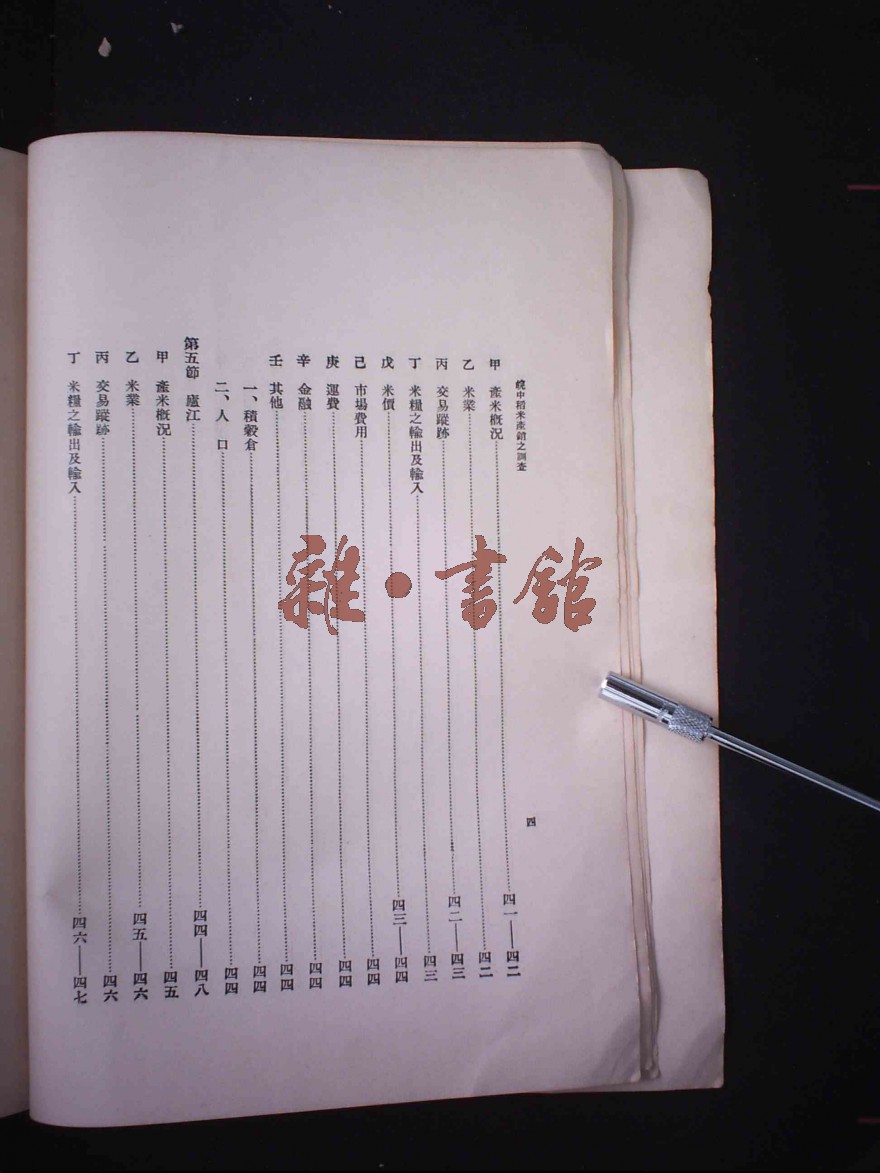 皖中稻米產銷之調查
四
甲 產米概況 四一——四二
乙 米業 四二
丙 交易蹤跡 四二——四三
丁 米糧之輸出及輸入 四三
戊 米價 四三——四四
己 市場費用 四四
庚 運費 四四
辛 金融 四四
壬 其他 四四
一、積穀倉 四四
二、人口 四四
第五節 廬江 四四——四八
甲 產米概況 四五
乙 米業 四五——四六
丙 交易蹤跡 四六
丁 米糧之輸出及輸入 四六——四七
雜·書館